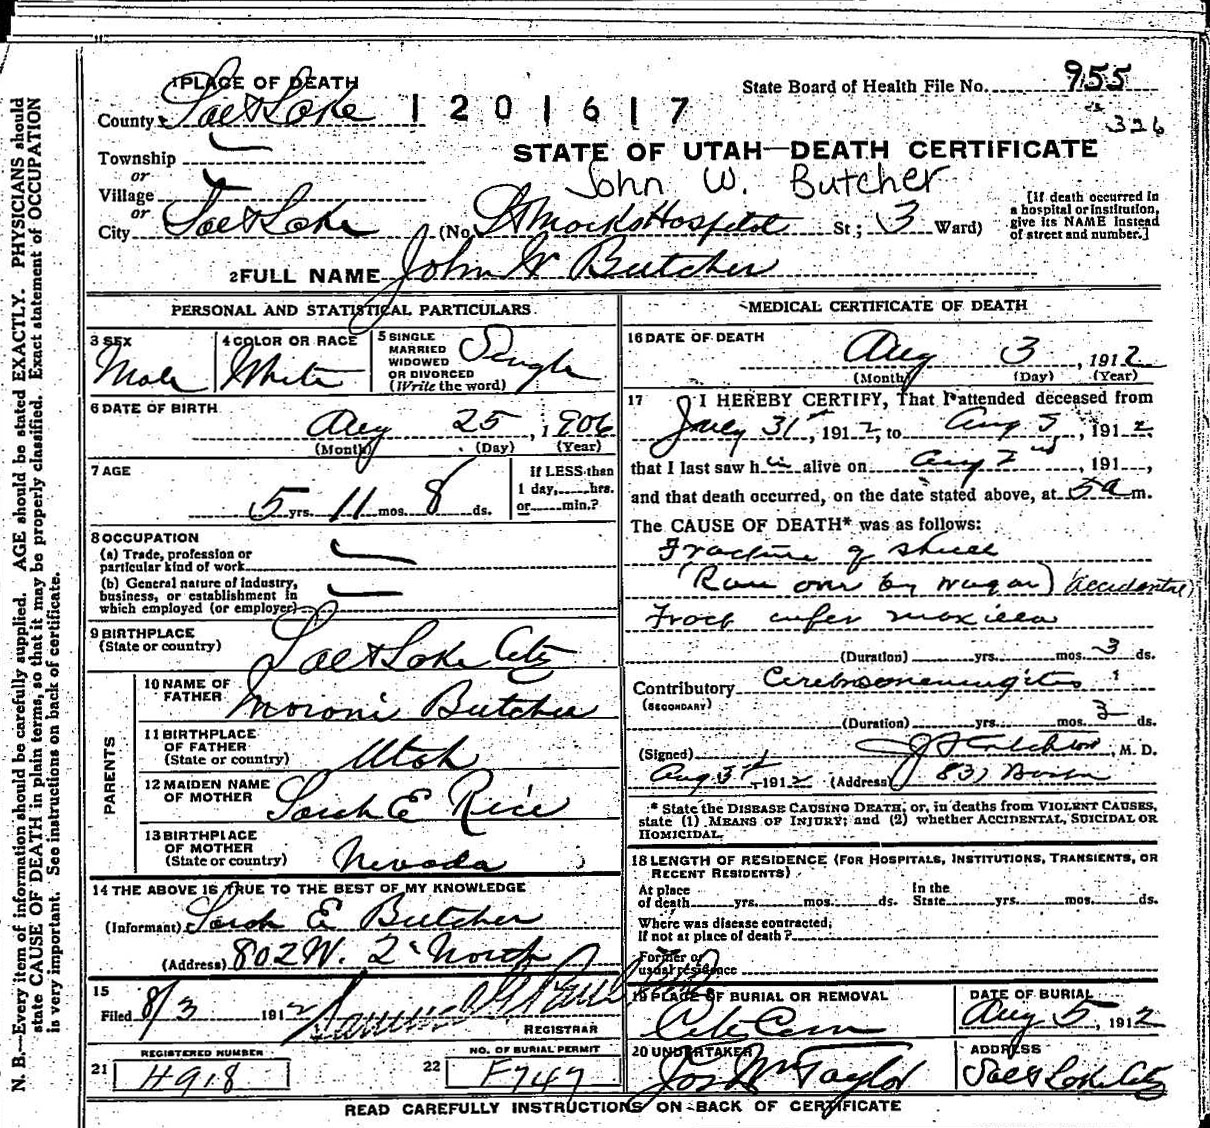 955
State Board of Health File No.
326
1 PLACE OF DEATH
County Salt Lake 1201617
Township
or
Village
or
City Salt Lake
STATE OF UTAH—DEATH CERTIFICATE
John W. Butcher
(No. St Marks Hospital St; 3 Ward)
[If death occurred in
a hospital or institution,
give its NAME instead
of street and number.]
2 FULL NAME John W Butcher
PERSONAL AND STATISTICAL PARTICULARS
3 SEX
Male
4 COLOR OR RACE
White
5 SINGLE
MARRIED
WIDOWED
OR DIVORCED
(Write the word)
Single
6 DATE OF BIRTH
Aug 25, 1906
(Month) (Day) (Year)
7 AGE
5 yrs. 11 mos. 8 ds.
If LESS than
1 day, hrs.
or min.?
8 OCCUPATION
(a) Trade, profession or
particular kind of work
(b) General nature of industry,
business, or establishment in
which employed (or employer)
9 BIRTHPLACE
(State or country)
Salt Lake City
PARENTS
10 NAME OF
FATHER
Moroni Butcher
11 BIRTHPLACE
OF FATHER
(State or country)
Utah
12 MAIDEN NAME
OF MOTHER
Sarah E Rice
13 BIRTHPLACE
OF MOTHER
(State or country)
Nevada
14 THE ABOVE IS TRUE TO THE BEST OF MY KNOWLEDGE
(Informant) Sarah E Butcher
(Address) 802 W. 2 North
15
Filed 8/3 1912
REGISTRAR
REGISTERED NUMBER
21 H918
NO. OF BURIAL PERMIT
22 F747
MEDICAL CERTIFICATE OF DEATH
16 DATE OF DEATH
Aug 3, 1912
(Month) (Day) (Year)
17 I HEREBY CERTIFY, That I attended deceased from
July 31st, 1912, to Aug 3, 1912,
that I last saw him alive on Aug 2nd, 191 ,
and that death occurred, on the date stated above, at 5 a m.
The CAUSE OF DEATH* was as follows:
Fracture of skull
(Run over by wagon) (accidental)
Fract infer maxilla
(Duration) yrs. mos. 3 ds.
Contributory Cerebromeningitis
(SECONDARY)
(Duration) yrs. mos. 3 ds.
(Signed) , M. D.
Aug 3rd, 1912 (Address) 837 Boston
* State the DISEASE CAUSING DEATH, or, in deaths from VIOLENT CAUSES,
state (1) MEANS OF INJURY; and (2) whether ACCIDENTAL, SUICIDAL OR
HOMICIDAL.
18 LENGTH OF RESIDENCE (FOR HOSPITALS, INSTITUTIONS, TRANSIENTS, OR
RECENT RESIDENTS)
At place
of death yrs. mos. ds.
In the
State yrs. mos. ds.
Where was disease contracted,
if not at place of death?
Former or
usual residence
19 PLACE OF BURIAL OR REMOVAL
City Cem
DATE OF BURIAL
Aug 5, 1912
20 UNDERTAKER
Jos Wm Taylor
ADDRESS
Salt Lake City
READ CAREFULLY INSTRUCTIONS ON BACK OF CERTIFICATE
N. B.—Every item of information should be carefully supplied. AGE should be stated EXACTLY. PHYSICIANS should
state CAUSE OF DEATH in plain terms, so that it may be properly classified. Exact statement of OCCUPATION
is very important. See instructions on back of certificate.